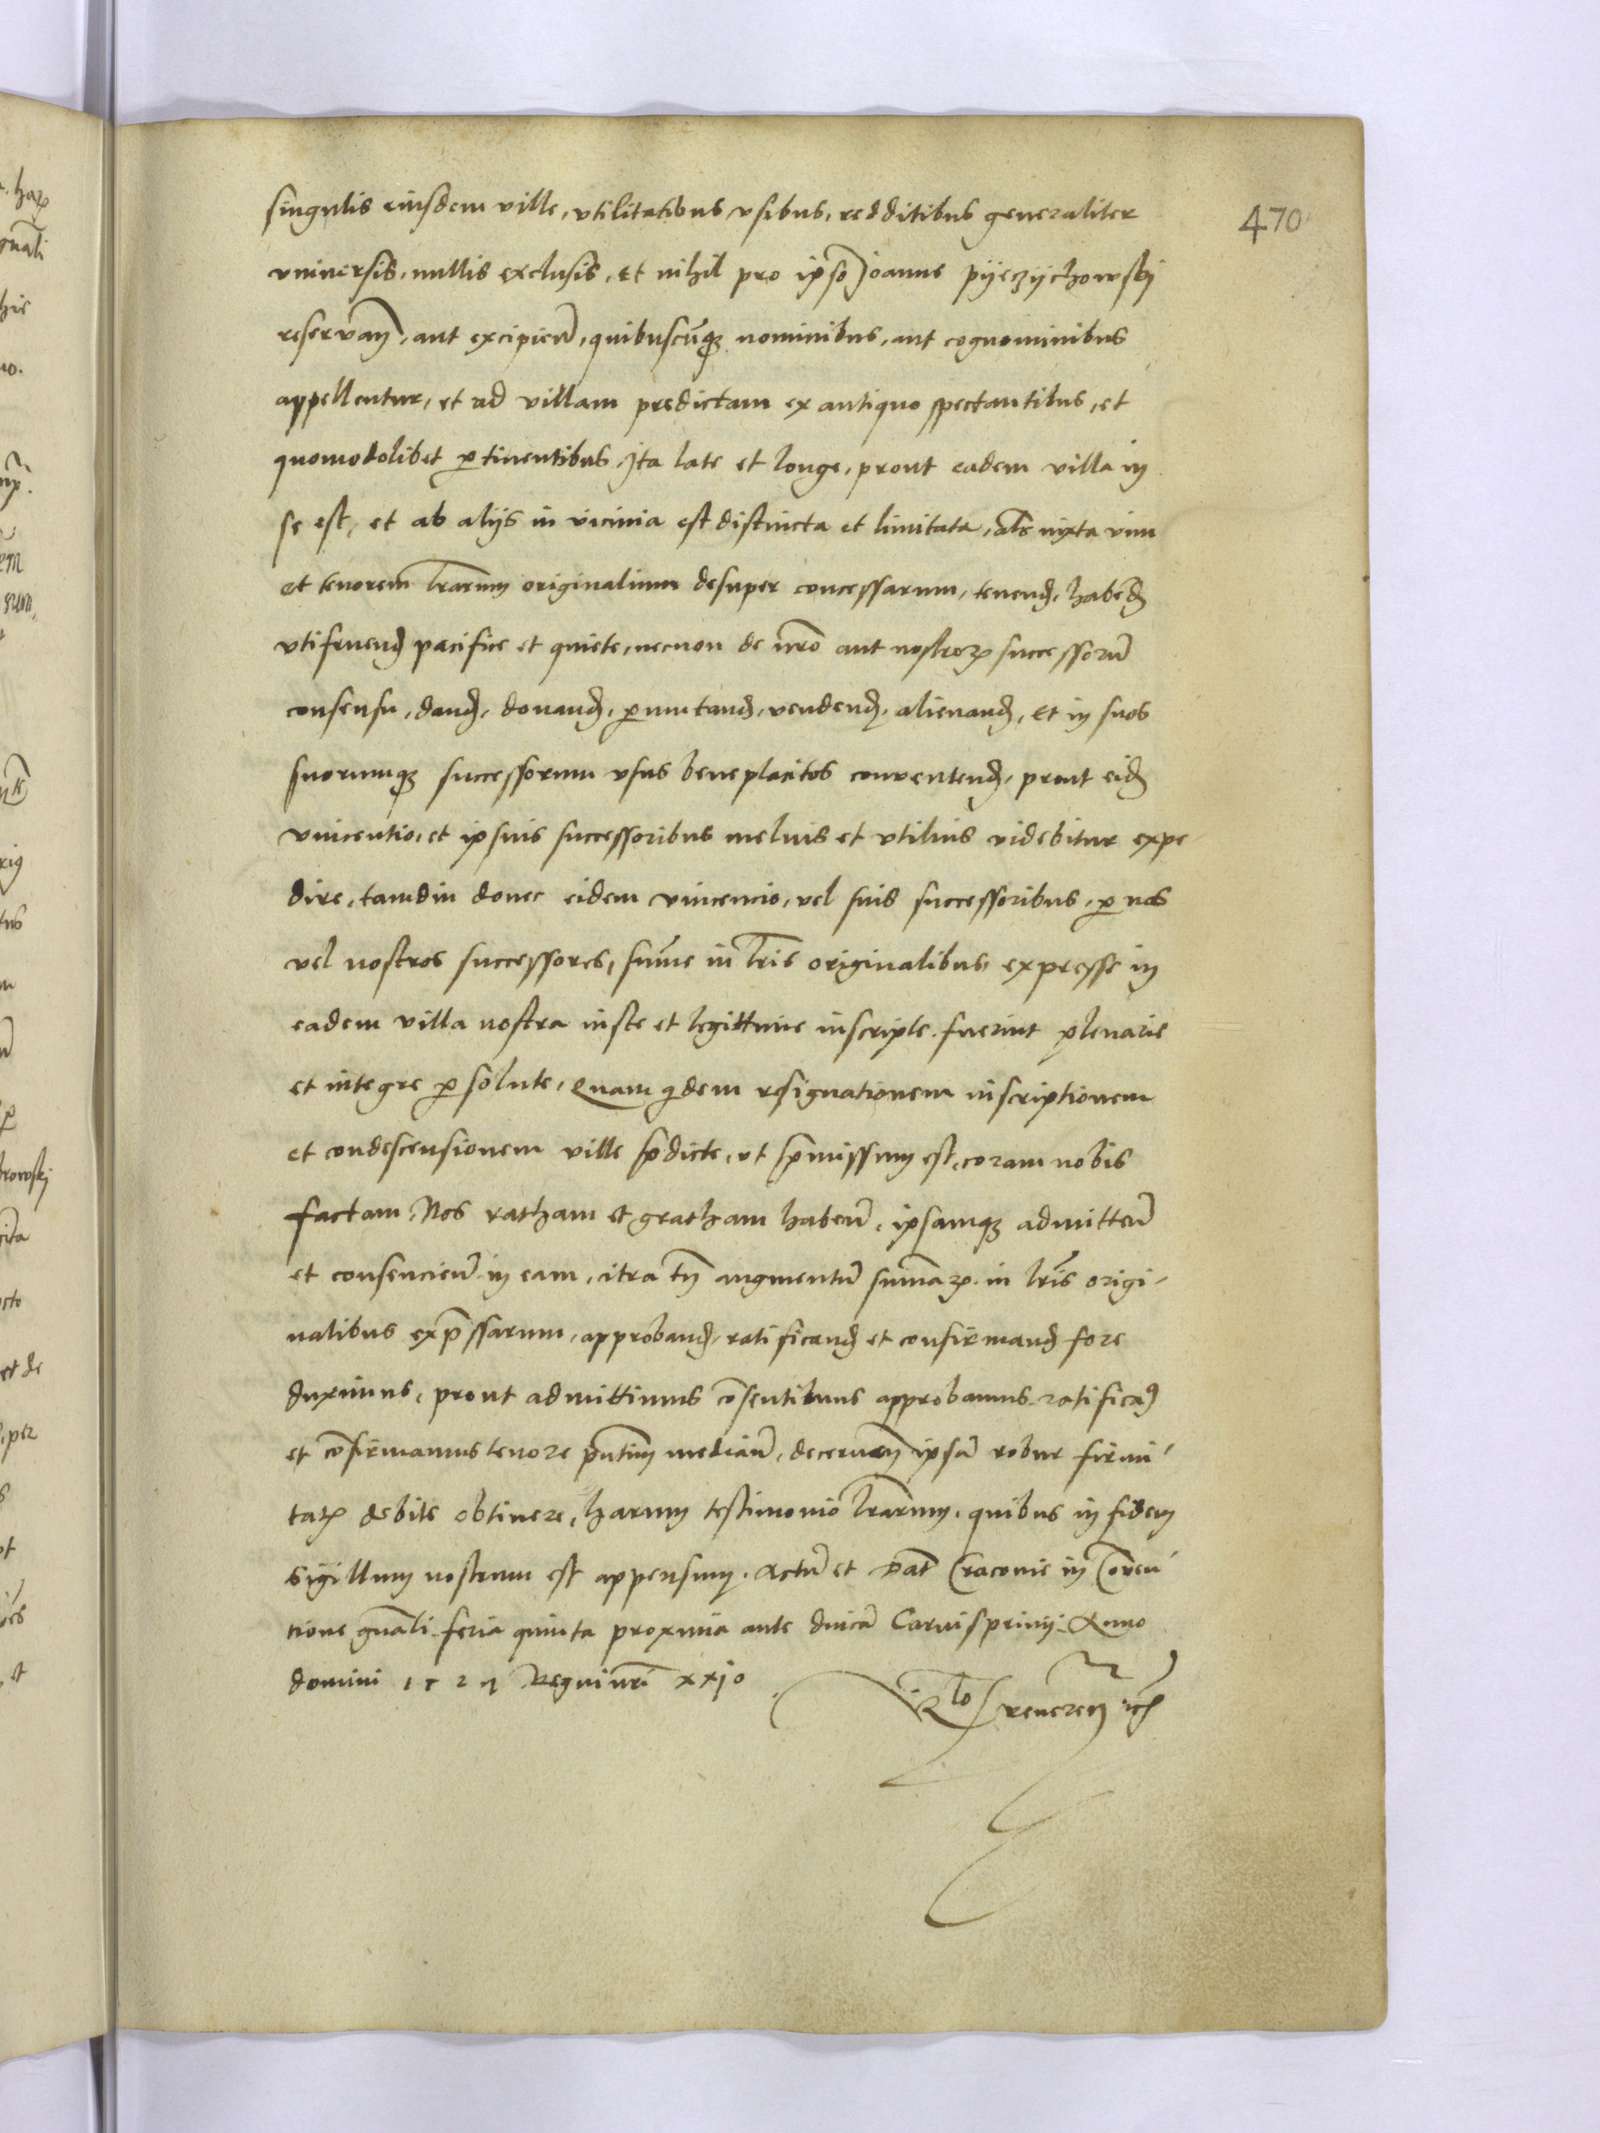 470
singulis eiusdem ville, vtilitatibus, vsibus, redditibus generaliter
vniuersis, nullis exclusis, et nihil pro ipso Joanne pyeczychowskj
reseruañ, aut excipieñ, quibuscũqʒ nominibus, aut cognominibus
appellentur, et ad villam predictam ex antiquo spectantibus, et
quomodolibet ꝑtinentibus. Ita late et longe, prout eadem villa in
se est, et ab alijs in vicinia est distincta et limitata, als iuxta vim
et tenorem lr̃arum originalium desuper concessarum, tenend, habēd
vtifruend pacifice et quiete, necnon de nrõ aut nostroꝝ successorũ
consensu, dand, donand, ꝑmutand, vendend, alienand, et in suos
suorumqʒ successorum vsus beneplacitos conuertend, prout eid
vincentio, et ip suis successoribus melius et vtilius videbitur expe-
dire, tamdiu donec eidem vincencio, vel suis successoribus, ꝑ nos
vel nostros successores, sum̃e in lr̃is originalibus expresse in
eadem villa nostra iuste et legittime inscripte fuerint plenarie
et integre ꝑsolute, Quam qidem resignationem inscriptionem
et condescensionem ville p̃dicte, vt p̃missum est, coram nobis
factam, Nos ratham et gratham habeñ, ipsamqʒ admitteñ
et consencieñ in eam, citra tñ augmentũ sum̃aꝝ in lr̃is origi-
nalibus exp̃ssarum, approband, ratificand et confirmand fore
duximus, prout admittimus cõsentimus approbamus ratificaꝯ
et cõfirmamus tenore p̃ntium mediañ, decerneñ ipsã robur firmi-
tatꝭ debite obtinere, harum testimonio lr̃arum, quibus in fidem
sigillum nostrum est appensum. Actũ et Dat̃ Cracouie in Conuen-
tione gn̄ali feria quinta proxima ante dnicã Carnispriuij. Anno
domini 1527 Regni nr̃i xxjo
Rlo reuereñ